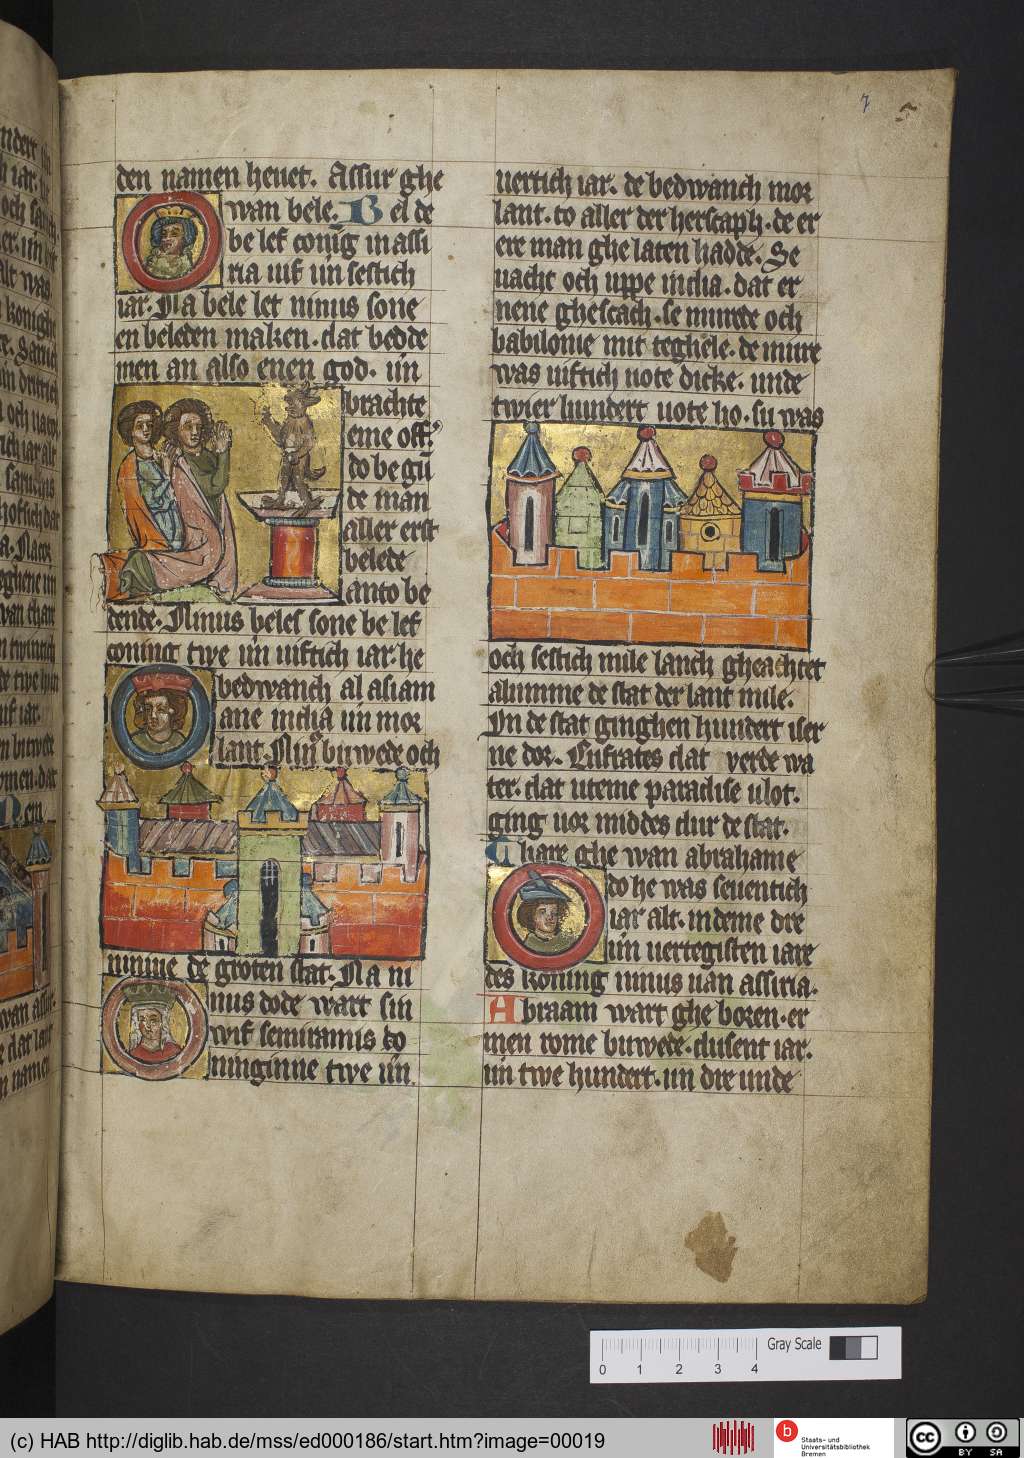 7
5
den namen hevet. Assur ghe
wan bele. Bel de
be lef conig in assi
ria vif un sestich
iar. Na bele let ninus sone
en beleden maken. dat bedde
men an also enen god. un
brachte
eme off.
do be gu͞
de man
aller erst
belede
anto be
dende. Ninus beles sone be lef
coning twe un viftich iar. he
bedwanch al asiam
ane india un mor
lant. Nin9 buwede och
ninive de groten stat. Na ni
nus dode wart sin
wif semiramis ko
ninginne twe un
viertich iar. de bedwanch mor
lant. to aller der herscaph. de er
ere man ghe laten hadde. Se
vacht och uppe india. dat er
nene ghescach. se murede och
babilonie mit teghele. de mure
was viftich vote dicke. unde
twier hundert vote ho. su was
och sestich mile lanch gheachtet
alumme de stat der lant mile.
In de stat ginghen hundert iser
ne dor. Eufrates dat verde wa
ter. dat uteme paradise vlot.
ging vor middes dur de stat.
Thare ghe wan abrahame
do he was seventich
iar alt. in deme dre
un vertegisten iare
des koning ninus van assiria.
Abraam wart ghe boren. er
men rome buwede. dusent iar.
un twe hundert. un dre unde
0 1 2 3 4
Gray Scale
(c) HAB http://diglib.hab.de/mss/ed000186/start.htm?image=00019
b
Staats- und
Universitätsbibliothek
Bremen
cc
BY SA